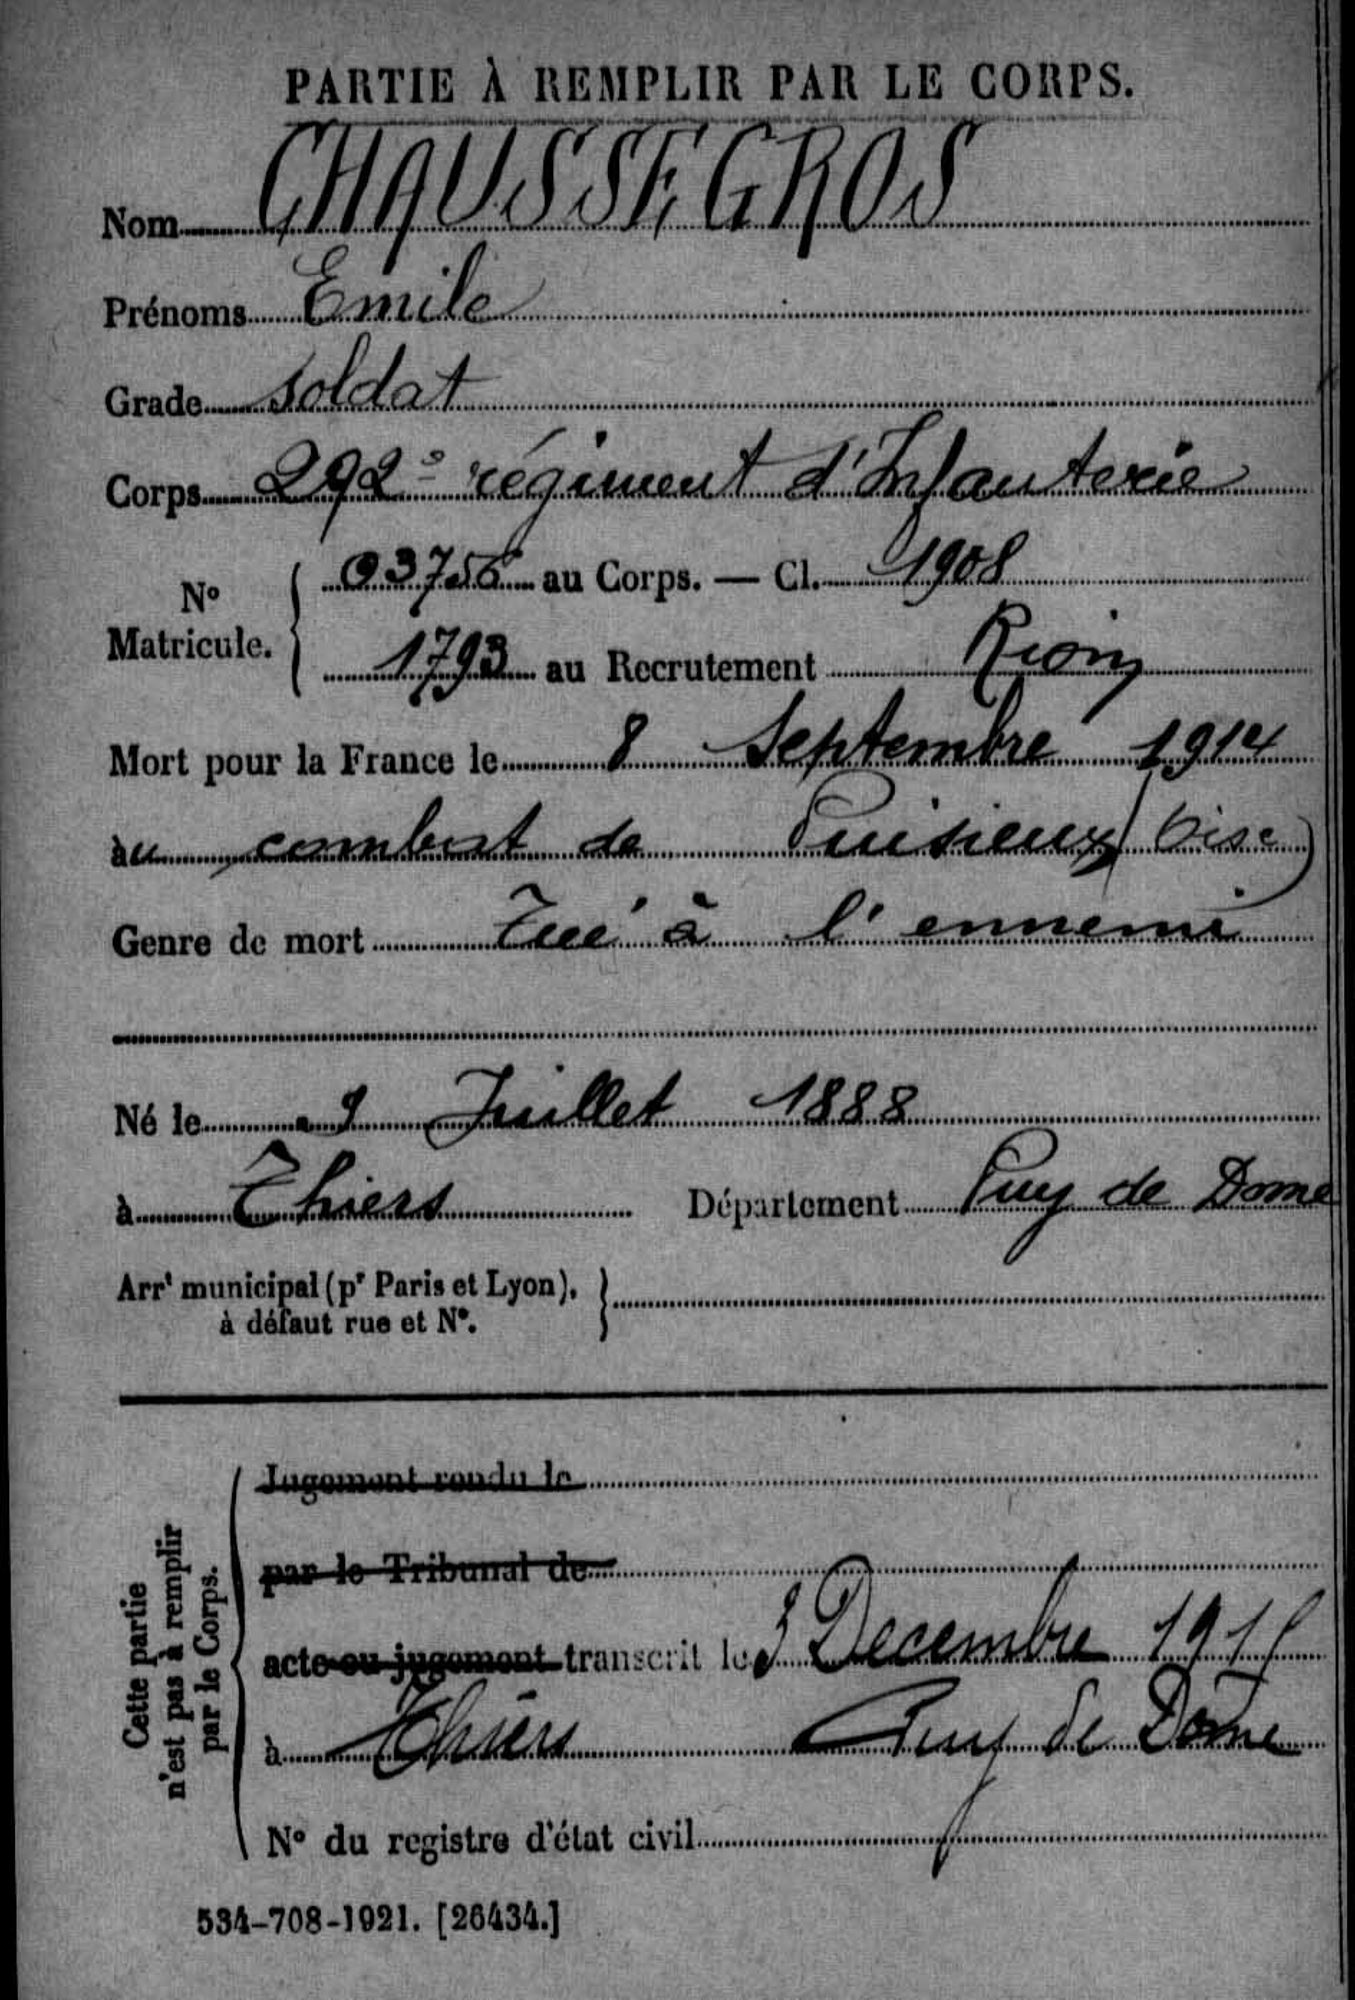 PARTIE À REMPLIR PAR LE CORPS.
Nom CHAUSSEGROS
Prénoms Emile
Grade soldat
Corps 292e régiment d'Infanterie
No Matricule. 03756 au Corps. — Cl. 1908
1793 au Recrutement Riom
Mort pour la France le 8 Septembre 1914
au combat de Puisieux (Oise)
Genre de mort Tué à l'ennemi
Né le 9 Juillet 1888
à Thiers Département Puy de Dome
Arrt municipal (pr Paris et Lyon),
à défaut rue et No.
Cette partie
n'est pas à remplir
par le Corps.
Jugement rendu le
par le Tribunal de
acte ou jugement transcrit le 3 Decembre
à Thiers Puy de Dôme
No du registre d'état civil
534-708-1921. [26434.]